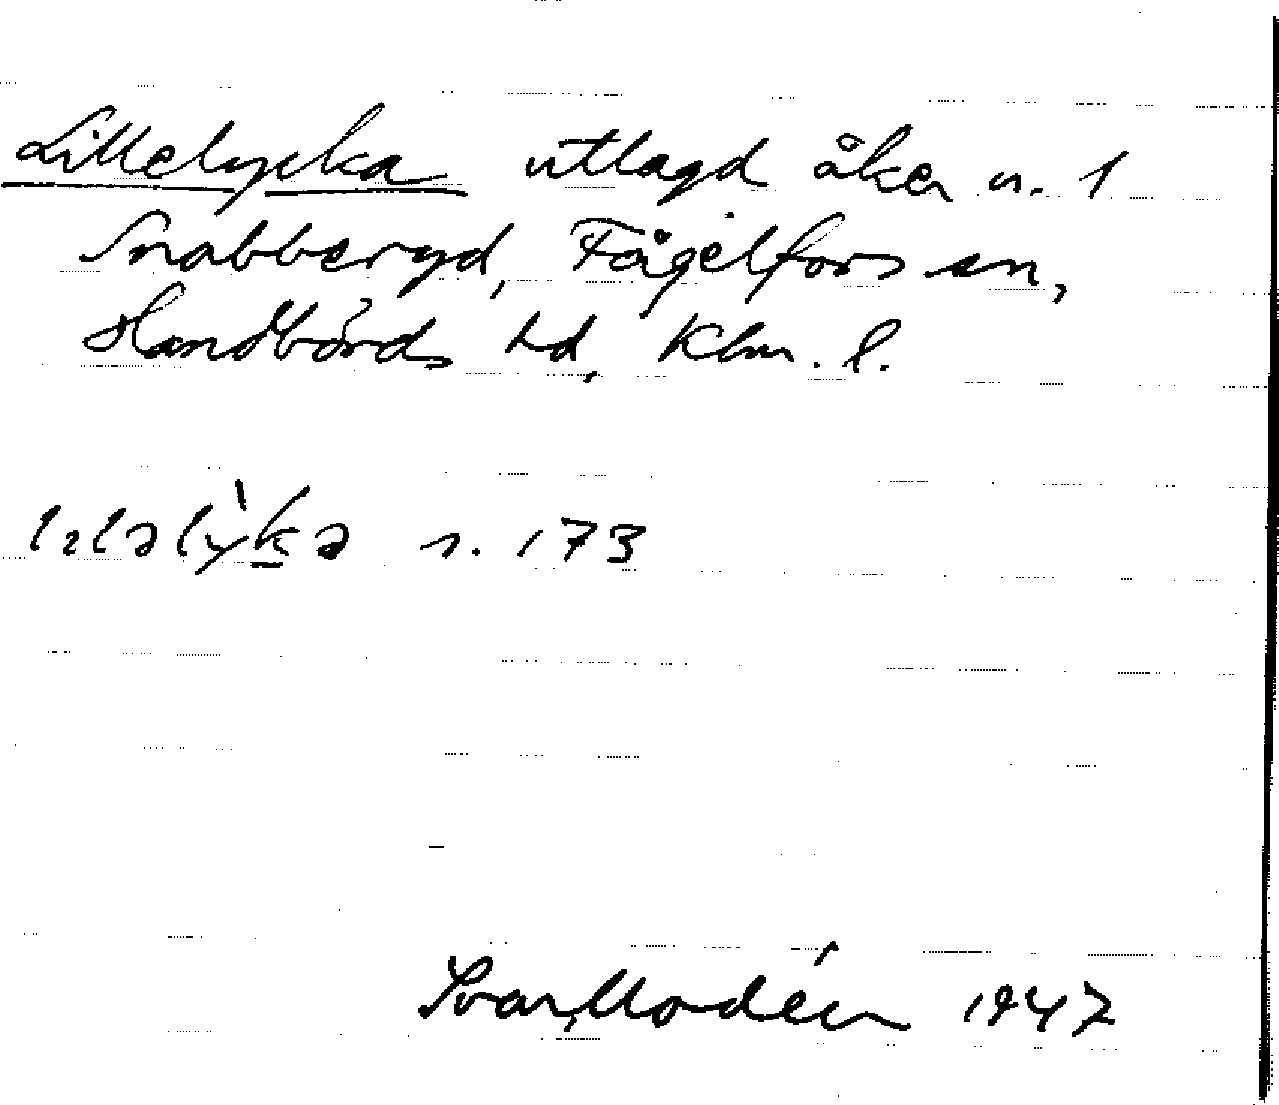 Lillelycka utlagd åker n. 1
Snabberyd, Fågelfors sn,
Handbörds hd, Klm. l.
lılǝlỳkǝ s. 173
Ivar Modéer 1947